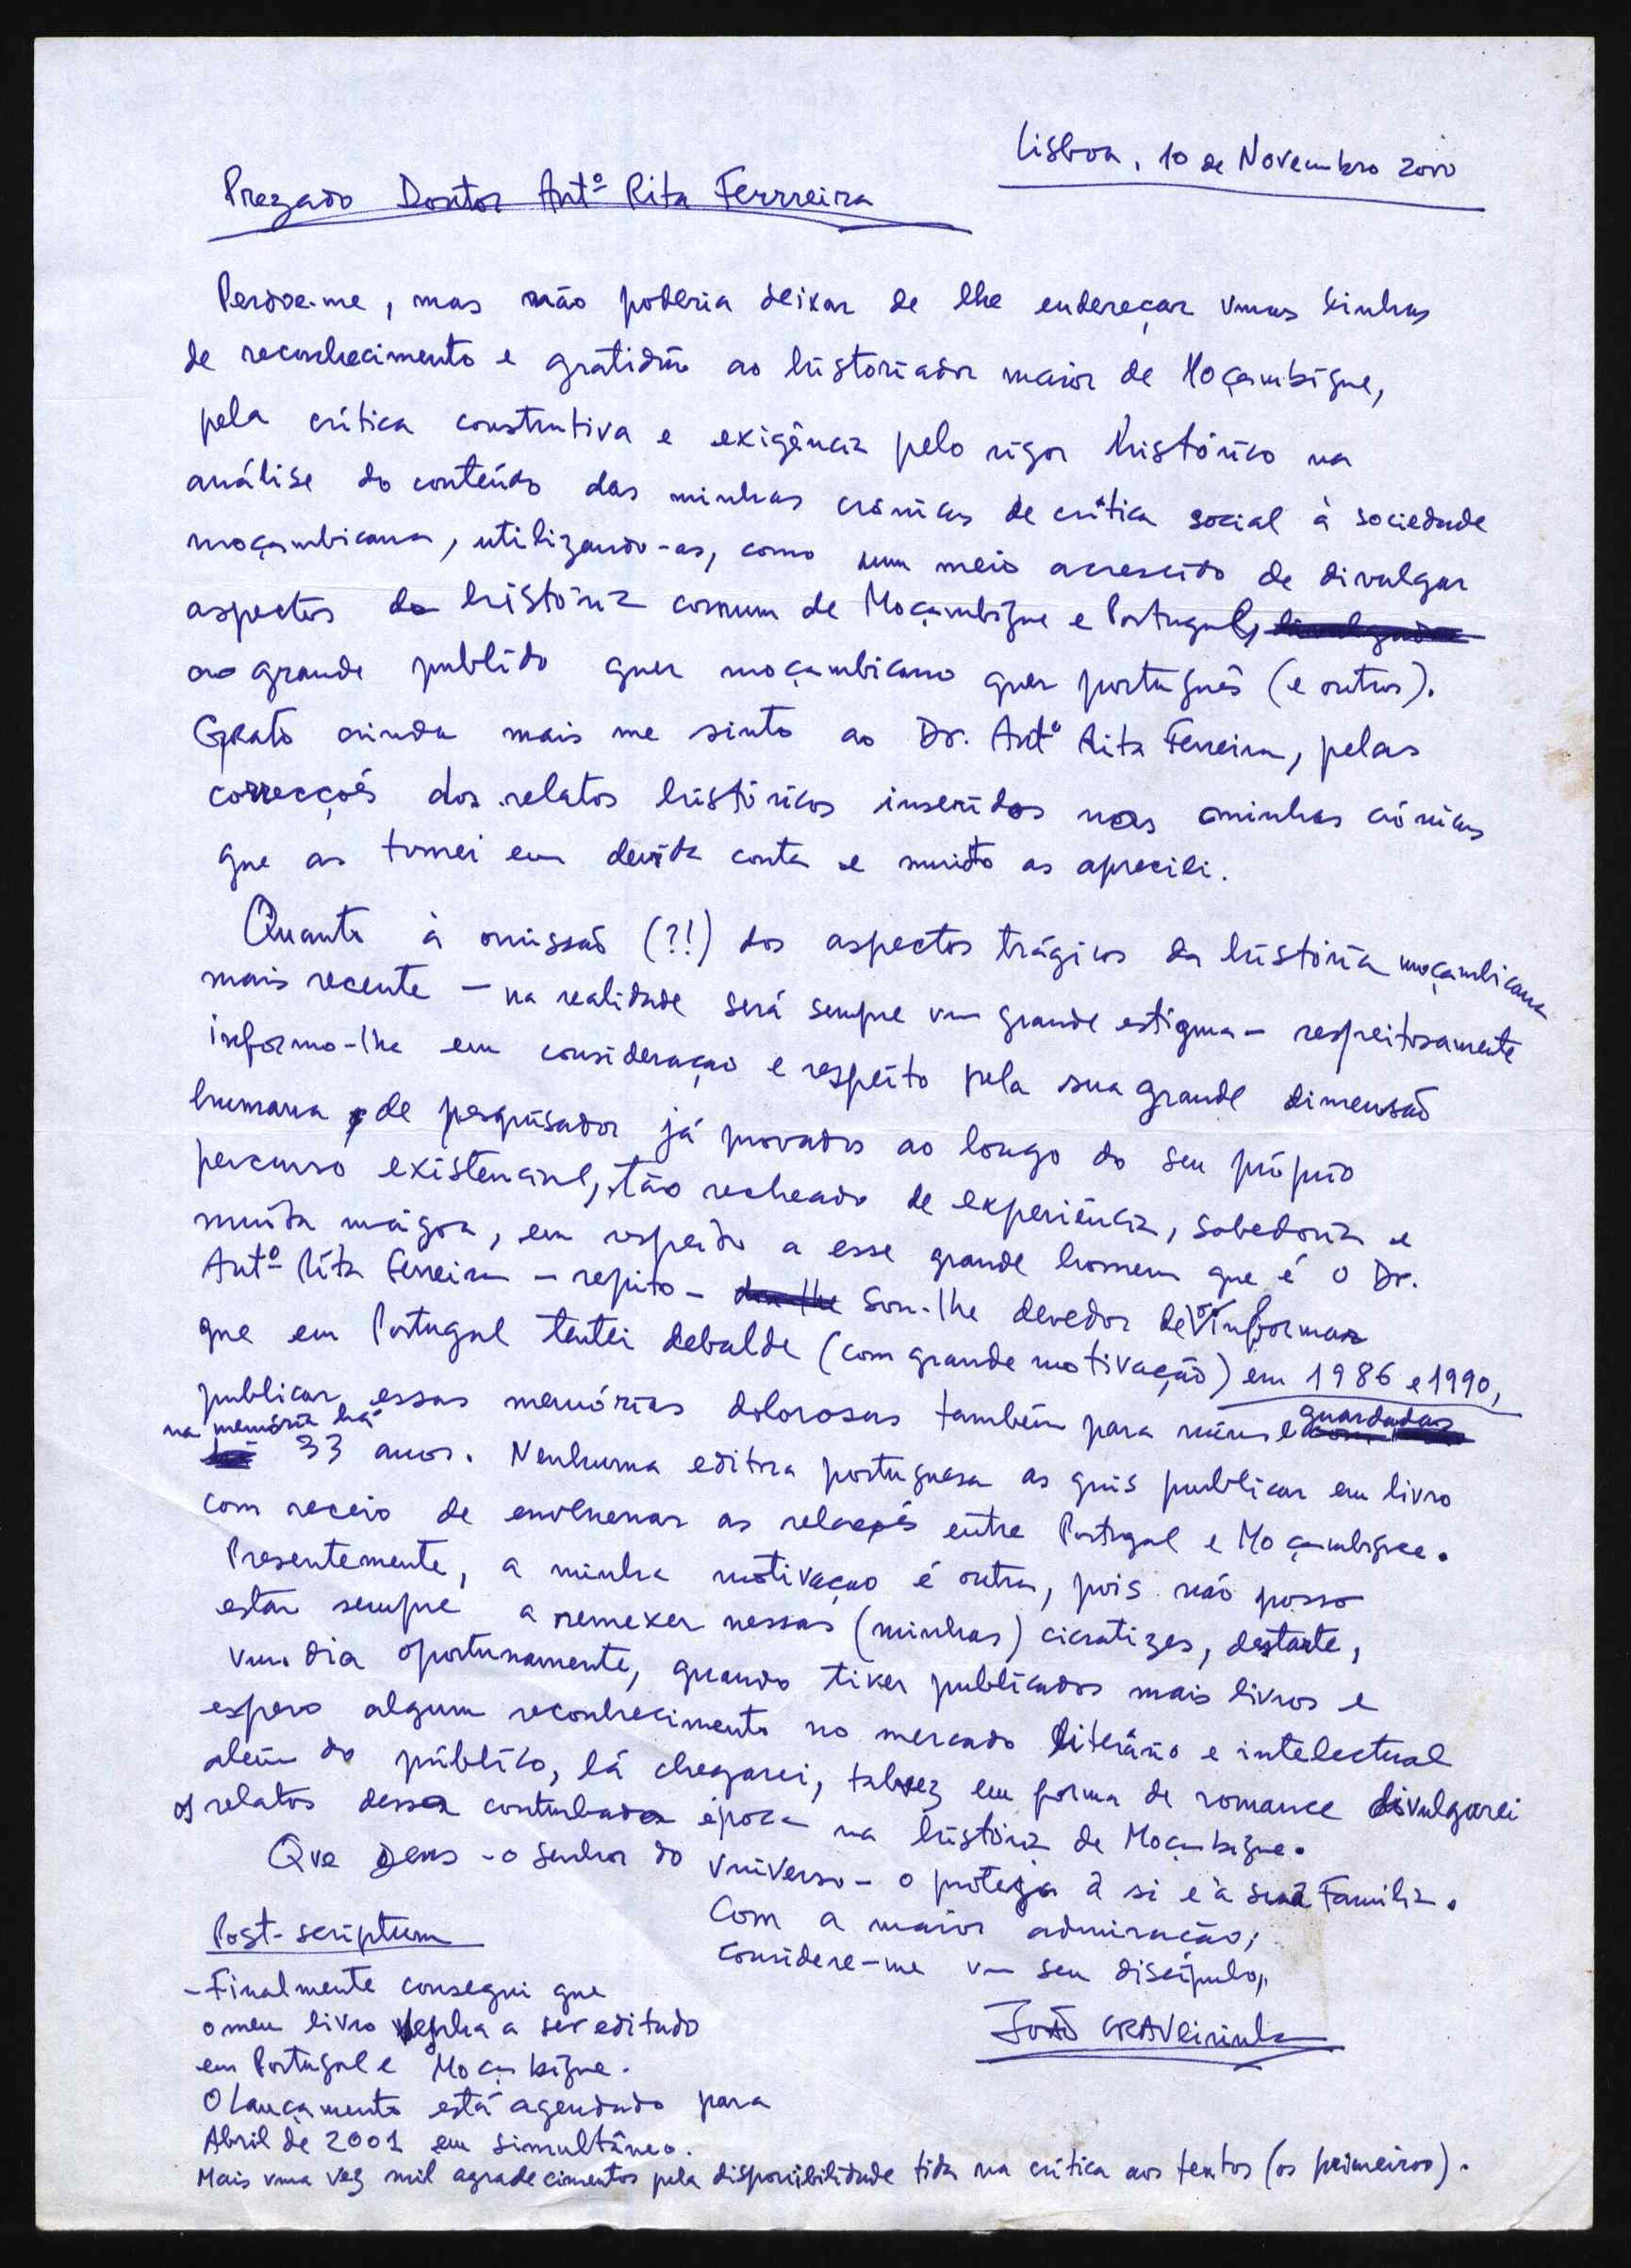 Lisboa, 10 de Novembro 2000
Prezado Doutor Antº Rita Ferrreira
Perdoe-me, mas não poderia deixar de lhe endereçar umas linhas
de reconhecimento e gratidão ao historiador maior de Moçambique,
pela crítica construtiva e exigência pelo rigor histórico na
análise do conteúdo das minhas crónicas de crítica social à sociedade
moçambicana, utilizando-as, como num meio acrescido de divulgar
aspectos da história comum de Moçambique e Portugal,
ao grande publido quer moçambicano quer português (e outros).
Grato ainda mais me sinto ao Dr. Antº Rita Ferreira, pelas
correcções dos relatos históricos inseridos nas minhas crónicas
que as tomei em devida conta e muito as apreciei.
Quanto à omissão (?!) dos aspectos trágicos da história moçambicana
mais recente – na realidade será sempre um grande estigma – respeitosamente
informo-lhe em consideração e respeito pela sua grande dimensão
humana e de pesquisador já provados ao longo do seu próprio
percurso existencial, tão recheado de experiência, sabedoria e
muita mágoa, em respeito a esse grande homem que é o Dr.
Antº Rita Ferreira – repito – dou-lhe Sou-lhe devedor de o informar
que em Portugal tentei debalde (com grande motivação) em 1986 e 1990,
publicar essas memórias dolorosas também para mim e guardadas
na memória há 33 anos. Nenhuma editora portuguesa as quis publicar em livro
com receio de envenenar as relações entre Portugal e Moçambique.
Presentemente, a minha motivação é outra, pois não posso
estar sempre a remexer nessas (minhas) cicratizes, destarte,
um dia oportunamente, quando tiver publicados mais livros e
espero algum reconhecimento no mercado literário e intelectual
além do público, lá chegarei, talvez em forma de romance divulgarei
os relatos dessa conturbada época na história de Moçambique.
Que Deus - o Senhor do Universo - o proteja a si e à sua Família.
Com a maior admiração;
considere-me um seu discípulo,
João CRAVeirinha
Post-scriptum
- Finalmente consegui que
o meu livro venha a ser editado
em Portugal e Moçambique.
O Lançamento está agendado para
Abril de 2001 em simultâneo.
Mais uma vez mil agradecimentos pela disponibilidade tida na crítica aos textos (os primeiros).